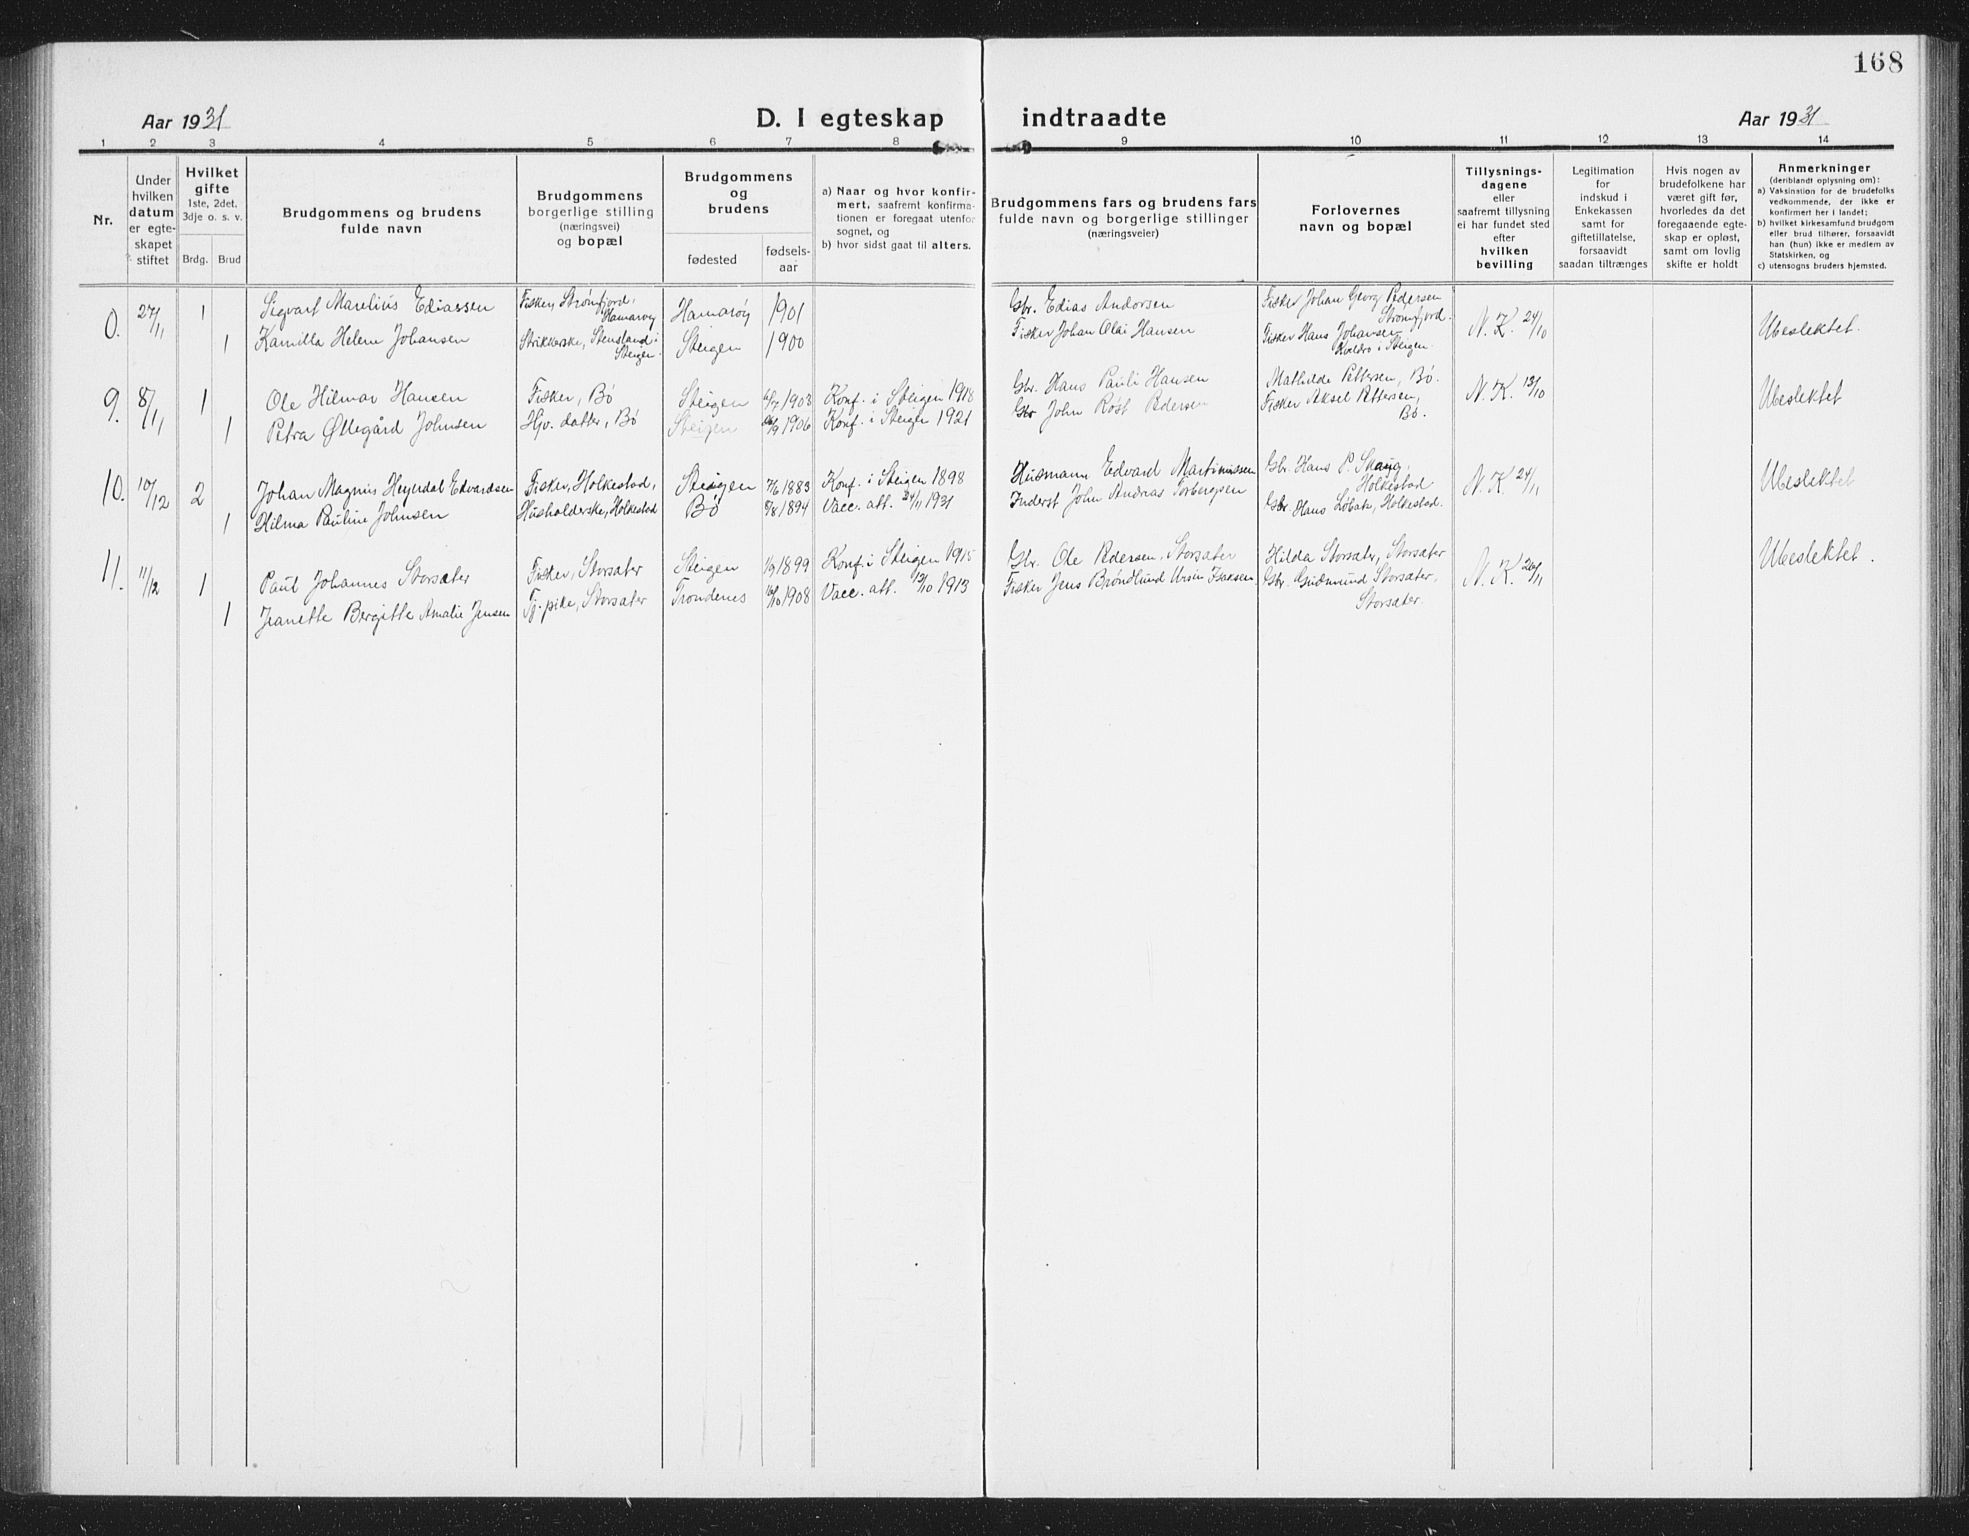 168
Aar 1931 D. I egteskap indtraadte Aar 1931
1 2 3 4 5 6 7 8 9 10 11 12 13 14
Nr.
Under
hvilken
datum
er egte-
skapet
stiftet
Hvilket
gifte
1ste, 2det,
3dje o. s. v.
Brdg. Brud
Brudgommens og brudens
fulde navn
Brudgommens
borgerlige stilling
(næringsvei)
og bopæl
Brudgommens
og
brudens
fødested
fødsels-
aar
a) Naar og hvor konfir-
mert, saafremt konfirma-
tionen er foregaat utenfor
sognet, og
b) hvor sidst gaat til alters.
Brudgommens fars og brudens fars
fulde navn og borgerlige stillinger
(næringsveier)
Forlovernes
navn og bopæl
Tillysnings-
dagene
eller
saafremt tillysning
ei har fundet sted
efter
hvilken
bevilling
Legitimation
for
indskud i
Enkekassen
samt for
giftetillatelse,
forsaavidt
saadan tiltrænges
Hvis nogen av
brudefolkene har
været gift før,
hvorledes da det
foregaaende egte-
skap er opløst,
samt om lovlig
skifte er holdt
Anmerkninger
(deriblandt oplysning om):
a) Vaksination for de brudefolks
vedkommende, der ikke er
konfirmert her i landet;
b) hvilket kirkesamfund brudgom
eller brud tilhører, forsaavidt
han (hun) ikke er medlem av
Statskirken, og
c) utensogns bruders hjemsted.
0. 27/11 1 Sigvart Marelius Ediassen Fisker, Strømfjord, Hamarøy Hamarøy 1901 Gbr. Edias Andorsen Fisker Johan Georg Pedersen Strømfjord. N. K. 24/10 Ubeslektet.
1 Kamilla Helene Johansen Strikkerske, Stensland i Steigen. Steigen 1900 Fisker Johan Olai Hansen Fisker Hans Johansen i Steigen.
9. 8/11 1 Ole Hilmar Hansen Fisker, Bø Steigen 1903 Konf. i Steigen 1918 Gbr. Hans Pauli Hansen Mathilde Pettersen, Bø. N. K. 13/10 Ubeslektet
1 Petra Øllegård Johnsen Hjv. datter, Bø Steigen 1906 Konf. i Steigen 1921 Gbr John Røst Pedersen Fisker Aksel Pettersen, Bø.
10. 10/12 2 Johan Magnus Heyerdal Edvardsen Fisker, Holkestad, Steigen 7/6 1883 Konf. i Steigen 1898 Husmann Edvard Martinussen Gbr. Hans P. Skaug, Holkestad N. K. 24/11 Ubeslektet
1 Hilma Pauline Johnsen Husholderske, Holkestad Bø 1894 Vacc. att. 24/11 1931 Inderst John Andreas Torbergsen Gbr. Hans Løbak, Holkestad.
11. 11/12 1 Paul Johannes Storsæter Fisker, Storsæter Steigen 1/9 1899 Konf. i Steigen 1915 Gbr. Ole Pedersen, Storsæter Hilda Storsæter, Storsæter N. K. 26/11 Ubeslektet.
1 Jeanette Bergitte Amalie Jensen Tj. pike, Storsæter Trondenes 16/10 1908 Vacc. att. 13/10 1913 Fisker Jens Brøndlund Ursin Isaksen Gbr. Gudmund Storsæter, Storsæter.